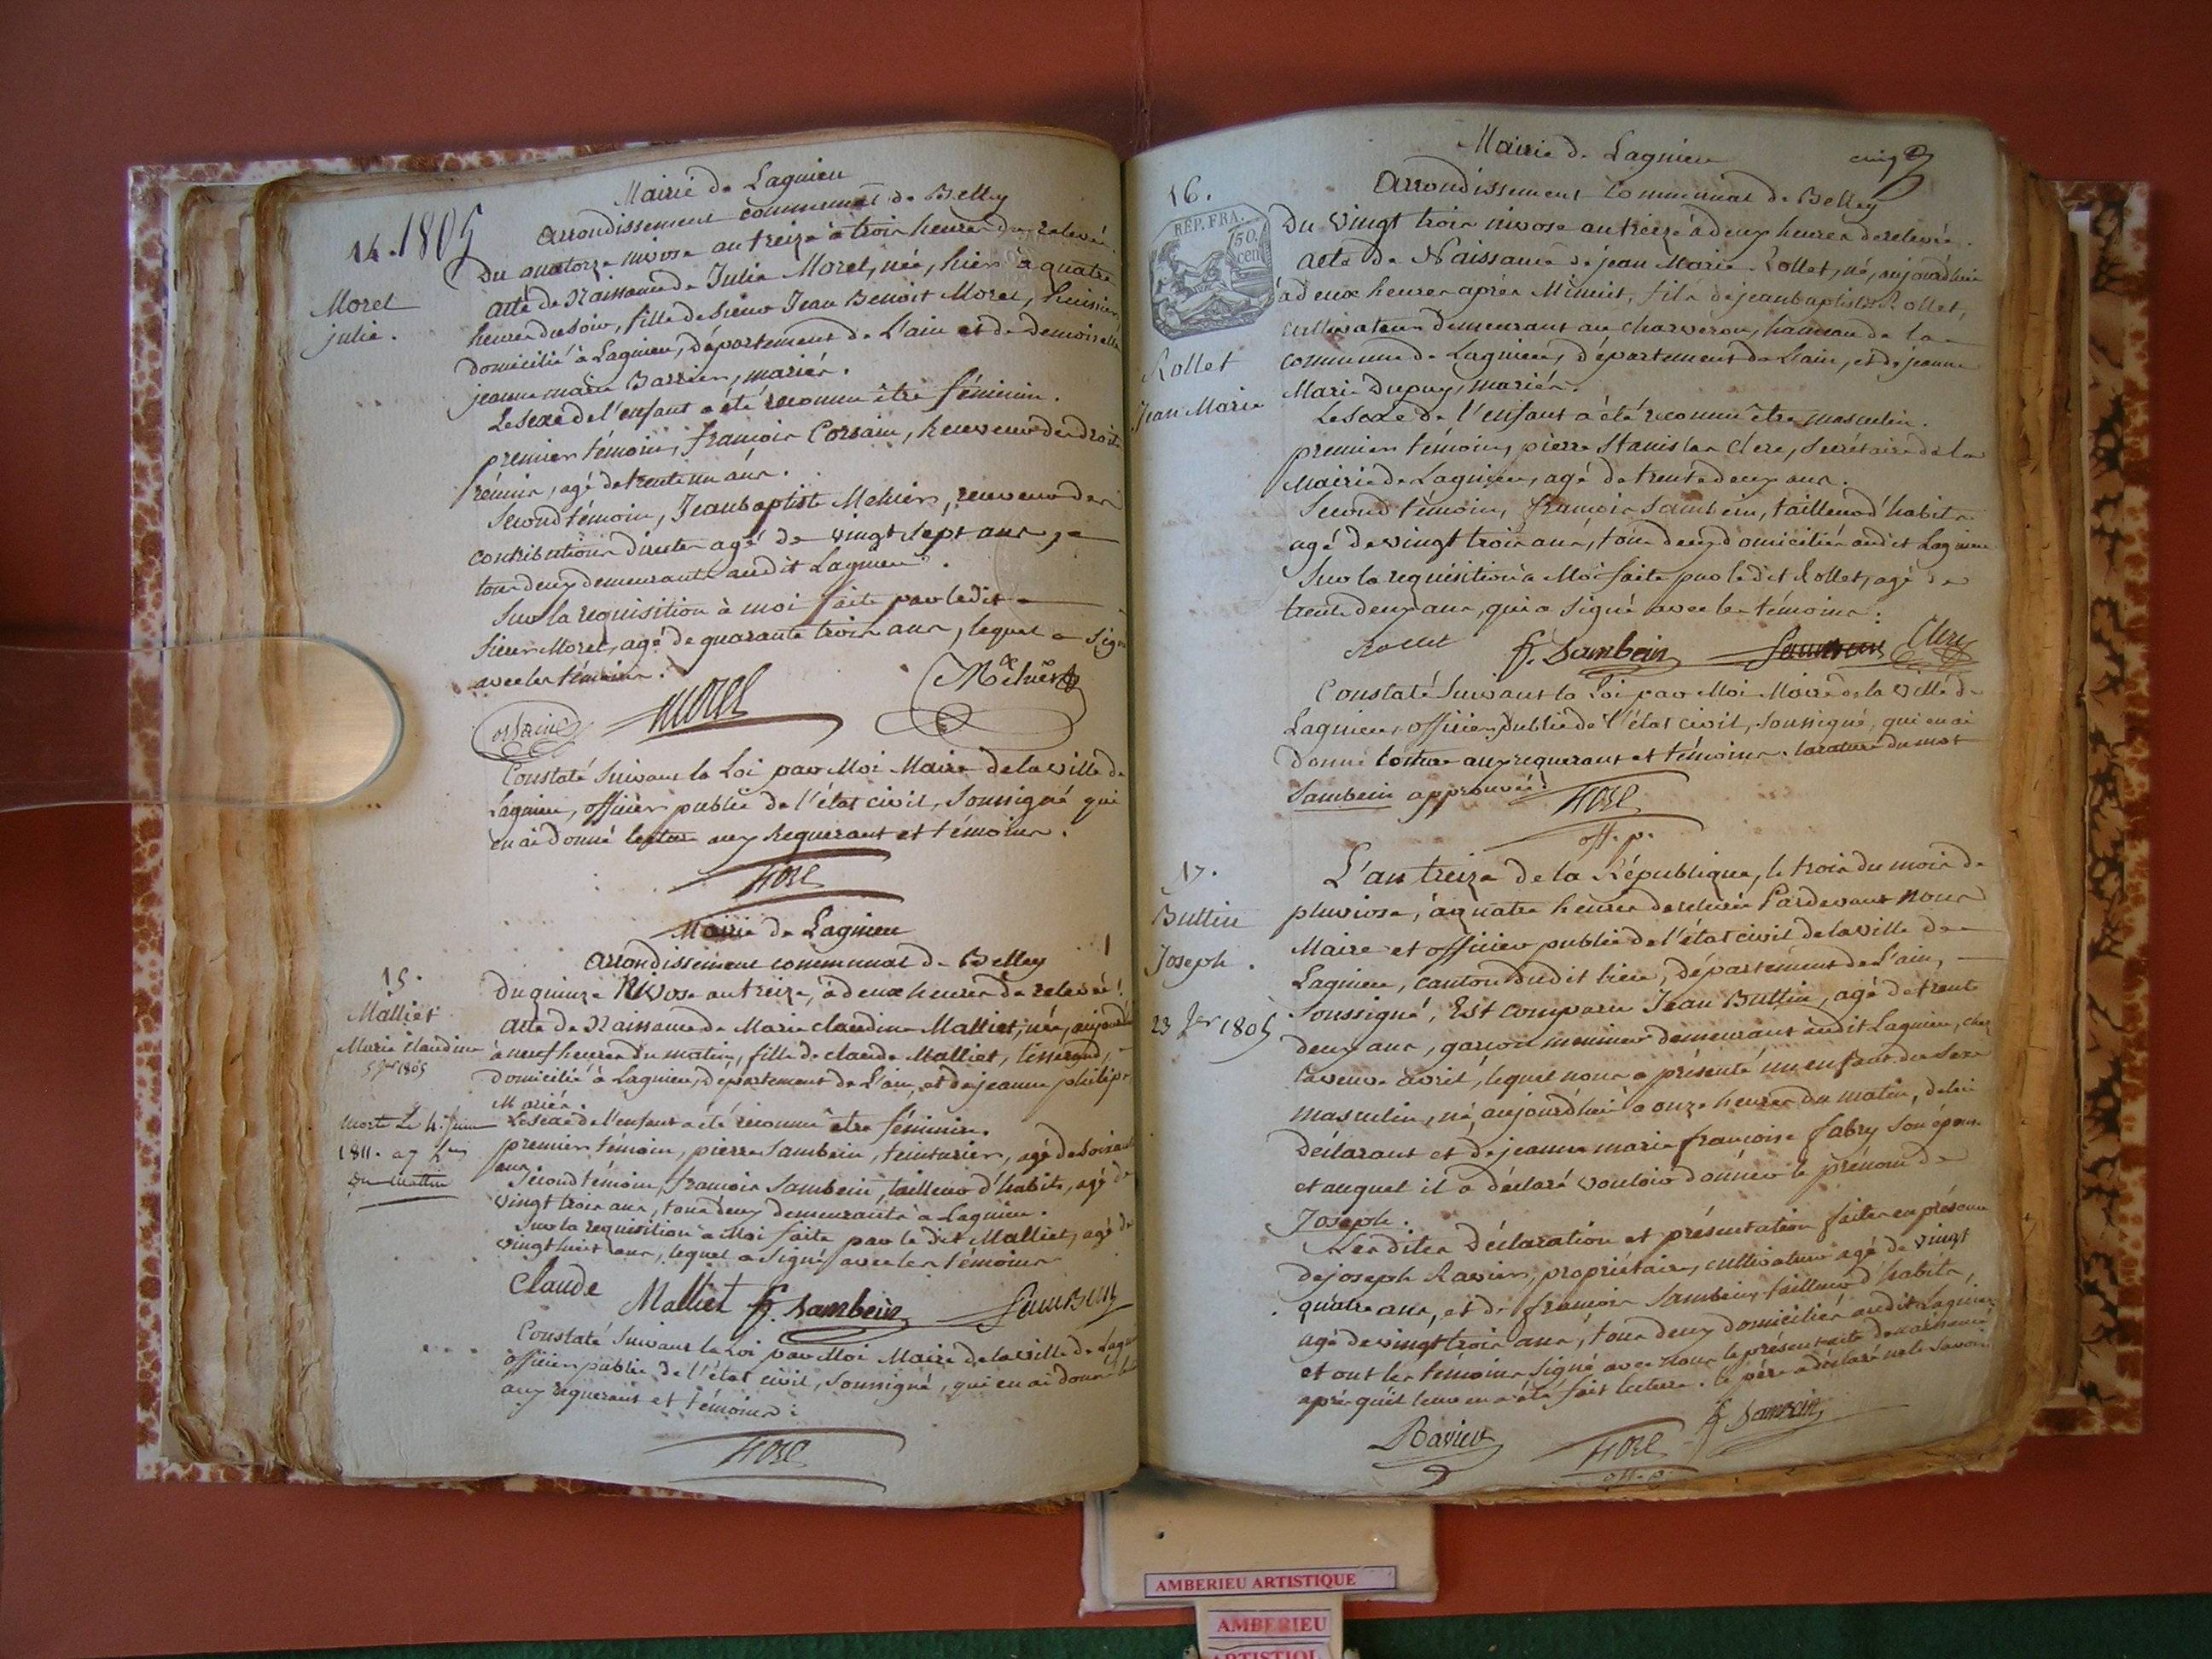 Mairie de Lagnieu
14. 1805
arrondissement communal de Belley
Du quatorze nivose an treize à trois heures de relevée.
Morel
julie.
acte de Naissance de Julie Morel, née, hier à quatre
heures du soir, fille de sieur Jean Benoit Morel, huissier,
domicilié à Lagnieu, département de L'ain et de demoiselle
jeanne marie Barrier, mariés.
Le sexe de l'enfant a été reconnu être féminin.
premier témoin, françois Corsain, receveur des droits
réunis, agé de trente un ans.
Second témoin, Jean baptiste Mehier, receveur des
contributions directes agé de vingt sept ans,
tous deux demeurants audit Lagnieu.
Sur la requisition à moi faite par ledit
sieur Morel, agé de quarante trois ans, lequel a signé
avec les témoins.
Morel
Constaté Suivant la Loi par Moi Maire de la ville de
Lagnieu, officier public de l'état civil, Soussigné qui
en ai donné lecture aux Requerant et témoins.
Mairie de Lagnieu
arrondissement communal de Belley
15.
Du quinze Nivose an treize, à deux heures de relevée.
Malliet
Marie Claudine
5 Jer 1805
acte de Naissance de Marie claudine Malliet, née, aujourd'hui
à neuf heures du matin, fille de claude Malliet, tisserand,
domicilié à Lagnieu, département de L'ain, et de jeanne philipe
Mariés.
morte Le 4. Juin
1811. a 7 h
du matin
Le sexe de l'enfant a été reconnu être féminin.
premier témoin, pierre Sambein, teinturier, agé de soixante
ans.
Second témoin, françois Sambein, tailleur d'habits, agé de
vingt trois ans, tous deux demeurants à Lagnieu.
Sur la requisition à Moi faite par le dit Malliet, agé de
vingt huit ans, lequel a Signé avec les témoins
Claude Malliet f. Sambein Sambein
Constaté Suivant la Loi par Moi Maire de la ville de Lagnieu
officier public de l'état civil, Soussigné, qui en ai donné
aux requerant et témoins.
Mairie de Lagnieu
cinq
16.
arrondissement Communal de Belley
RÉP. FRA.
50.
cen
Du vingt trois nivose an treize à deux heures de relevée.
acte de Naissance de jean Marie Rollet, né, aujourd'hui
à deux heures après Minuit, fils de jean baptiste Rollet,
cultivateur demeurant au charveron, hameau de la
Rollet
Jean Marie
commune de Lagnieu, département de L'ain, et de jeanne
Marie Dupuy, mariés.
Le sexe de l'enfant a été reconnu être masculin.
premier témoin, pierre Stanislas Clerc, Secrétaire de la
Mairie de Lagnieu, agé de trente deux ans.
Second témoin, françois Sambein, tailleur d'habits
agé de vingt trois ans, tous deux domiciliés audit Lagnieu
Sur la requisition à Moi faite par le dit Rollet, agé de
trente deux ans, qui a Signé avec les témoins.
Rollet f. Sambein Sambein Clerc
Constaté Suivant la Loi par Moi Maire de la ville de
Lagnieu, officier public de l'état civil, Soussigné, qui en ai
donné lecture aux requerant et témoins. la rature du mot
Sambein approuvée.
off. p.
17.
Buttin
Joseph.
23 Jer 1805
L'an treize de la République, le trois du mois de
pluviose, à quatre heures de relevée Pardevant Nous
Maire et officier public de l'état civil de la ville de
Lagnieu, canton dudit lieu, département de L'ain,
Soussigné, Est comparu Jean Buttin, agé de trente
deux ans, garçon meunier demeurant audit Lagnieu, chez
la veuve avril, lequel nous a présenté un enfant du Sexe
masculin, né, aujourd'hui à onze heures du matin, de lui
Déclarant et de jeanne marie françoise fabry Son épouse
et auquel il a déclaré vouloir donner le prénom de
Joseph.
Les dites Déclaration et présentation faites en présence
de joseph Ravier, propriétaire, cultivateur agé de vingt
quatre ans, et de françois Sambein, tailleur d'habits,
agé de vingt trois ans, tous deux domiciliés audit Lagnieu,
et ont les témoins Signé avec nous le présent acte de naissance
après qu'il leur en a été fait lecture. le père a déclaré ne le Savoir.
Ravier f Sambein
off. p.
AMBERIEU ARTISTIQUE
AMBERIEU
ARTISTIQUE